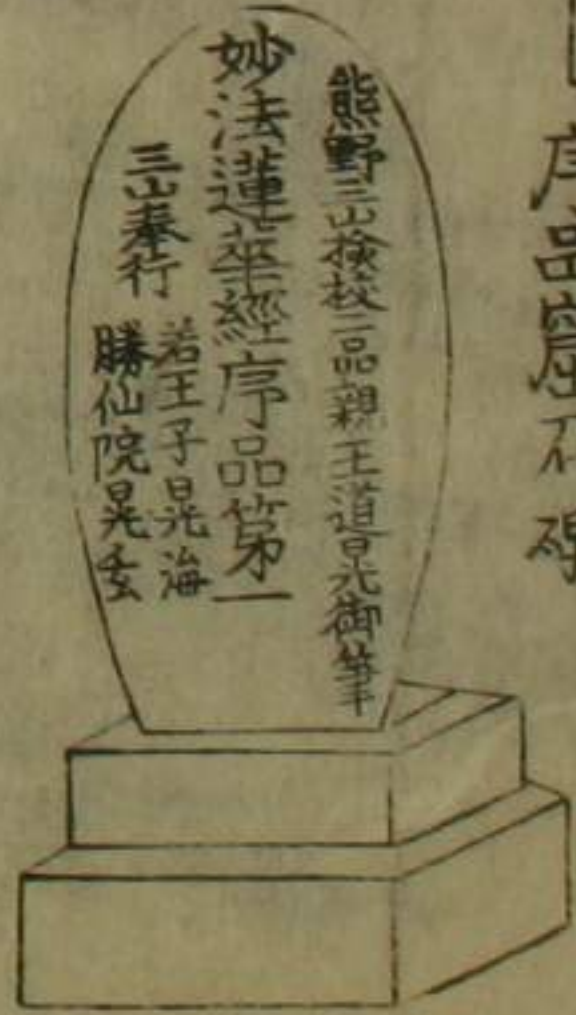 序品崫石碑
熊野三山検校二品親王道晃御筆
妙法蓮華經序品第一
三山奉行 若王子晃海
勝仙院晃玄